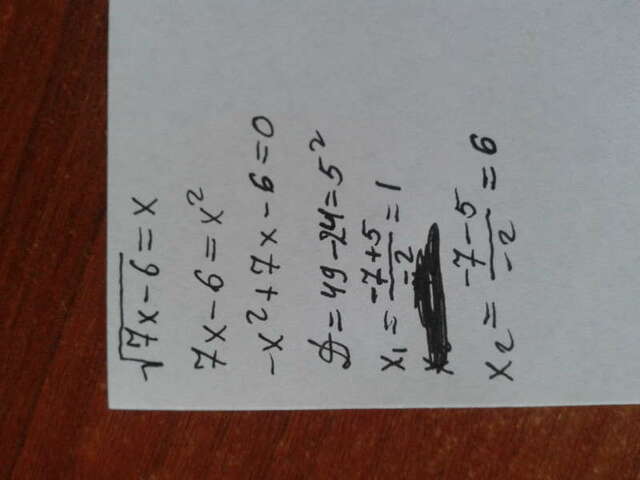 √7x-6 = x
7x-6 = x²
-x²+7x-6=0
D=49-24=5²
x₁ = -7+5/-2 = 1
x₂ = -7-5/-2 = 6